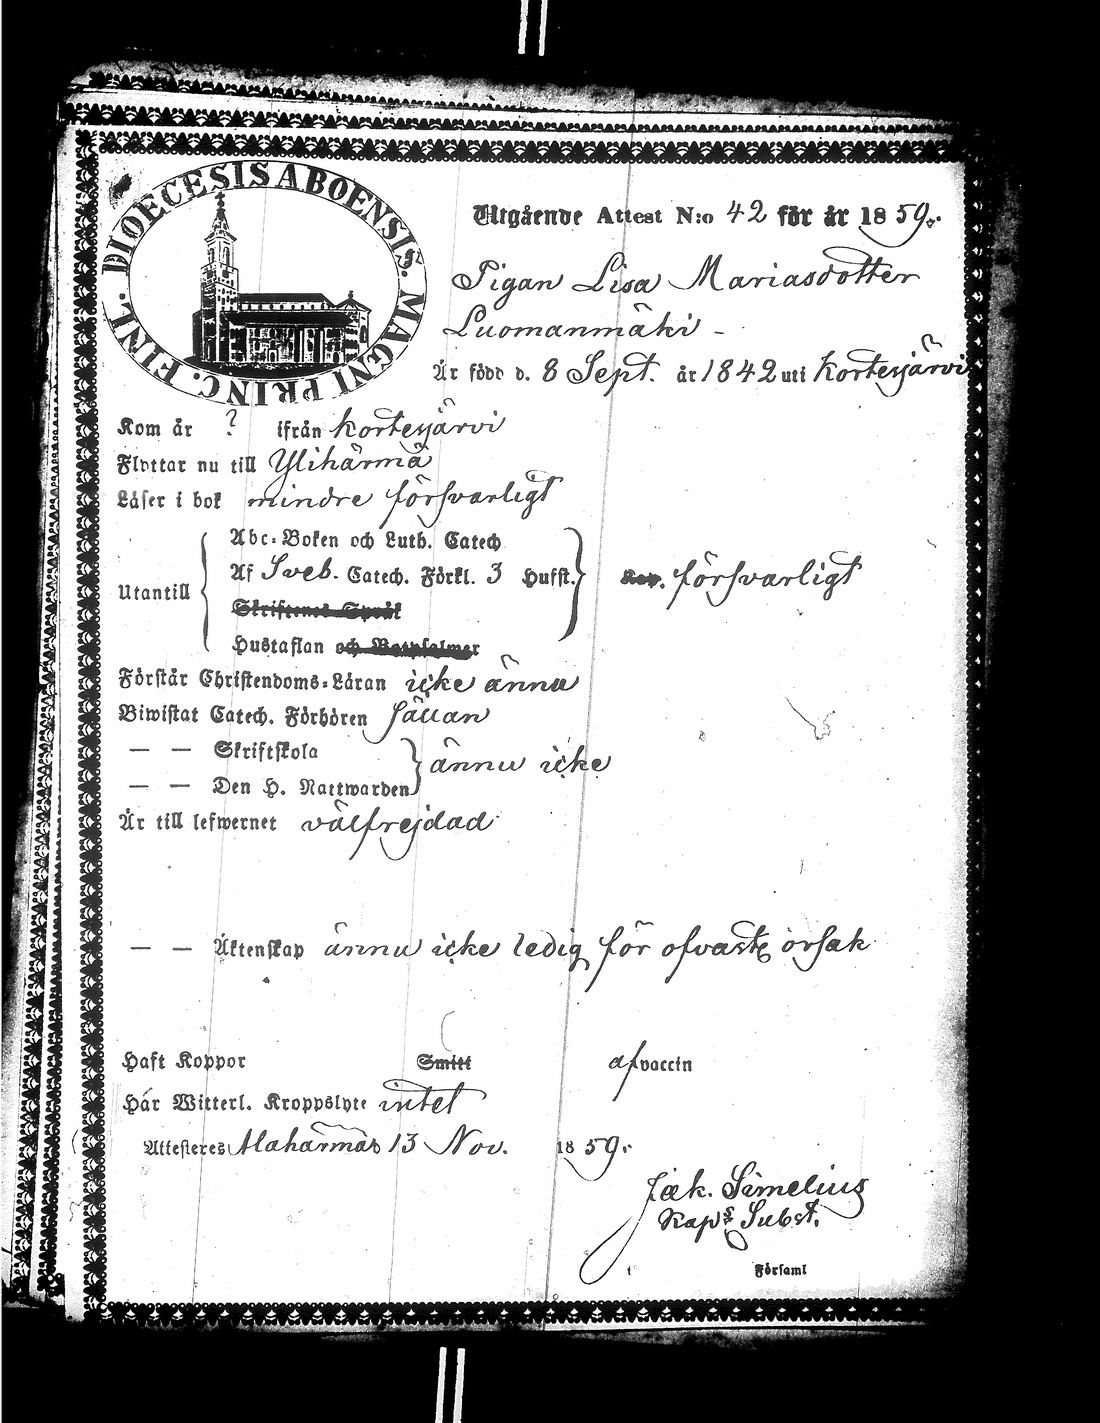 DIOECESIS ABOENSIS. MAGNI PRINC. FINL.
Utgående Attest N:o 42 för år 1859.
Pigan Lisa Mariasdotter
Luomanmäki -
Är född d. 8 Sept. år 1842 uti Kortesjärvi
Kom år ? ifrån Kortesjärvi
Flyttar nu till Ylihärmä
Läser i bok mindre försvarligt
Abc-Boken och Luth. Catech
Af Sveb. Catech. Förkl. 3 Hufst.
Utantill försvarligt
Skriftenes Språk
Hustaflan och Botpsalmer
Förstår Christendoms-Läran icke ännu
Biwistat Catech. Förhören sällan
— — Skriftskola
ännu icke
— — Den H. Nattwarden
Är till lefwernet välfrejdad
— — Äktenskap ännu icke ledig för ofvaste orsak
Haft Koppor Smitt af vaccin
Har Witterl. Kroppslyte intet
Attesteres Alahärmäs 13 Nov. 1859.
Jak. Simelius
Kaps Subst.
Församl